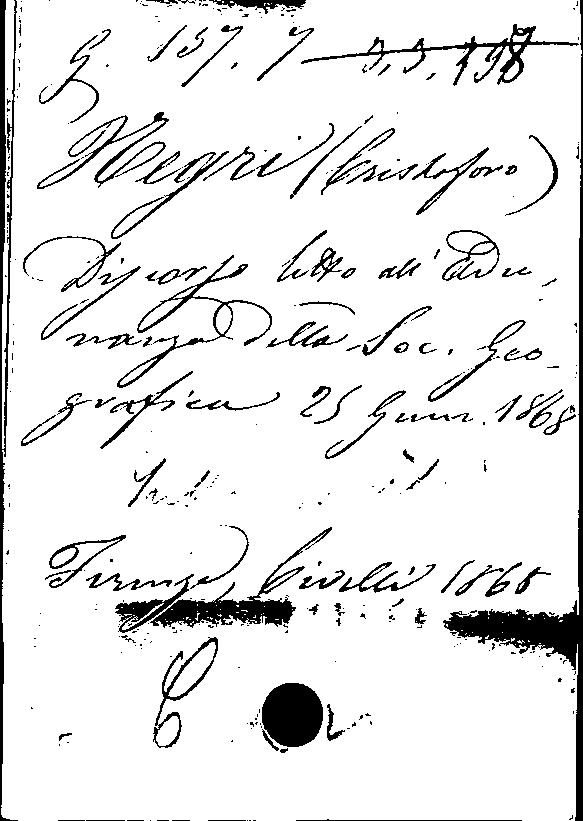 G. 137. 7 3.3.198
Negri (Cristoforo)
Discorso letto all'Adu,
nanza della Soc. Geo-
grafica 25 Genn. 1868
Firenze, Civelli 1868
C